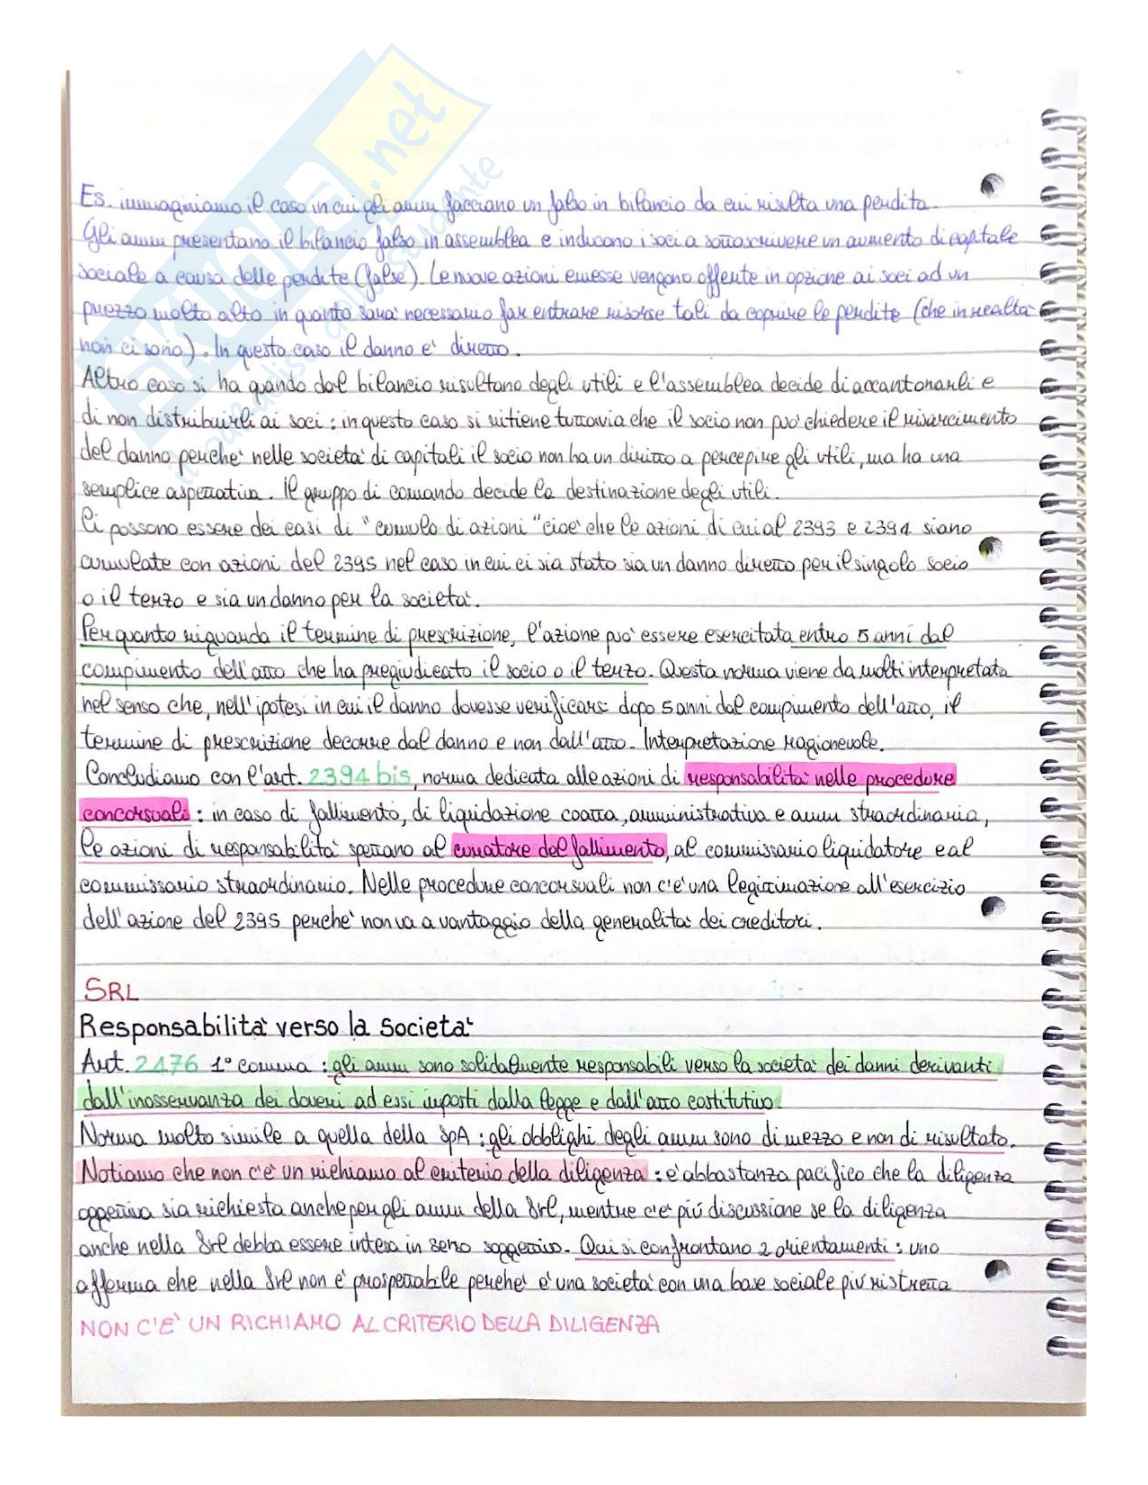 SKUOLA.net
Es. immaginiamo il caso in cui gli amm facciano un falso in bilancio da cui risulta una perdita.
Gli amm presentano il bilancio falso in assemblea e inducono i soci a sottoscrivere un aumento di capitale
sociale a causa delle perdite (false). Le nuove azioni emesse vengono offerte in opzione ai soci ad un
prezzo molto alto in quanto sara' necessario far entrare risorse tali da coprire le perdite (che in realta'
non ci sono). In questo caso il danno e' diretto.
Altro caso si ha quando dal bilancio risultano degli utili e l'assemblea decide di accantonarli e
di non distribuirli ai soci : in questo caso si ritiene tuttavia che il socio non puo' chiedere il risarcimento
del danno perche' nelle societa' di capitali il socio non ha un diritto a percepire gli utili, ma ha una
semplice aspettativa. Il gruppo di comando decide la destinazione degli utili.
Ci possono essere dei casi di "cumulo di azioni" cioe' che le azioni di cui al 2393 e 2394 siano
cumulate con azioni del 2395 nel caso in cui ci sia stato sia un danno diretto per il singolo socio
o il terzo e sia un danno per la societa'.
Per quanto riguarda il termine di prescrizione, l'azione puo' essere esercitata entro 5 anni dal
compimento dell'atto che ha pregiudicato il socio o il terzo. Questa norma viene da molti interpretata
nel senso che, nell'ipotesi in cui il danno dovesse verificarsi dopo 5 anni dal compimento dell'atto, il
termine di prescrizione decorre dal danno e non dall'atto. Interpretazione ragionevole.
Concludiamo con l'art. 2394 bis, norma dedicata alle azioni di responsabilita' nelle procedure
concorsuali : in caso di fallimento, di liquidazione coatta, amministrativa e amm straordinaria,
le azioni di responsabilita' spettano al curatore del fallimento, al commissario liquidatore e al
commissario straordinario. Nelle procedure concorsuali non c'e' una legittimazione all'esercizio
dell'azione del 2395 perche' non va a vantaggio della generalita' dei creditori.
SRL
Responsabilita' verso la societa'
Art. 2476 1° comma : gli amm sono solidalmente responsabili verso la societa' dei danni derivanti
dall'inosservanza dei doveri ad essi imposti dalla legge e dall'atto costitutivo.
Norma molto simile a quella della SpA : gli obblighi degli amm sono di mezzo e non di risultato.
Notiamo che non c'e' un richiamo al criterio della diligenza : e' abbastanza pacifico che la diligenza
oggettiva sia richiesta anche per gli amm della Srl, mentre c'e' più discussione se la diligenza
anche nella Srl debba essere intesa in senso soggettivo. Qui si confrontano 2 orientamenti : uno
afferma che nella Srl non e' prospettabile perche' e' una societa' con una base sociale più ristretta
NON C'E' UN RICHIAMO AL CRITERIO DELLA DILIGENZA